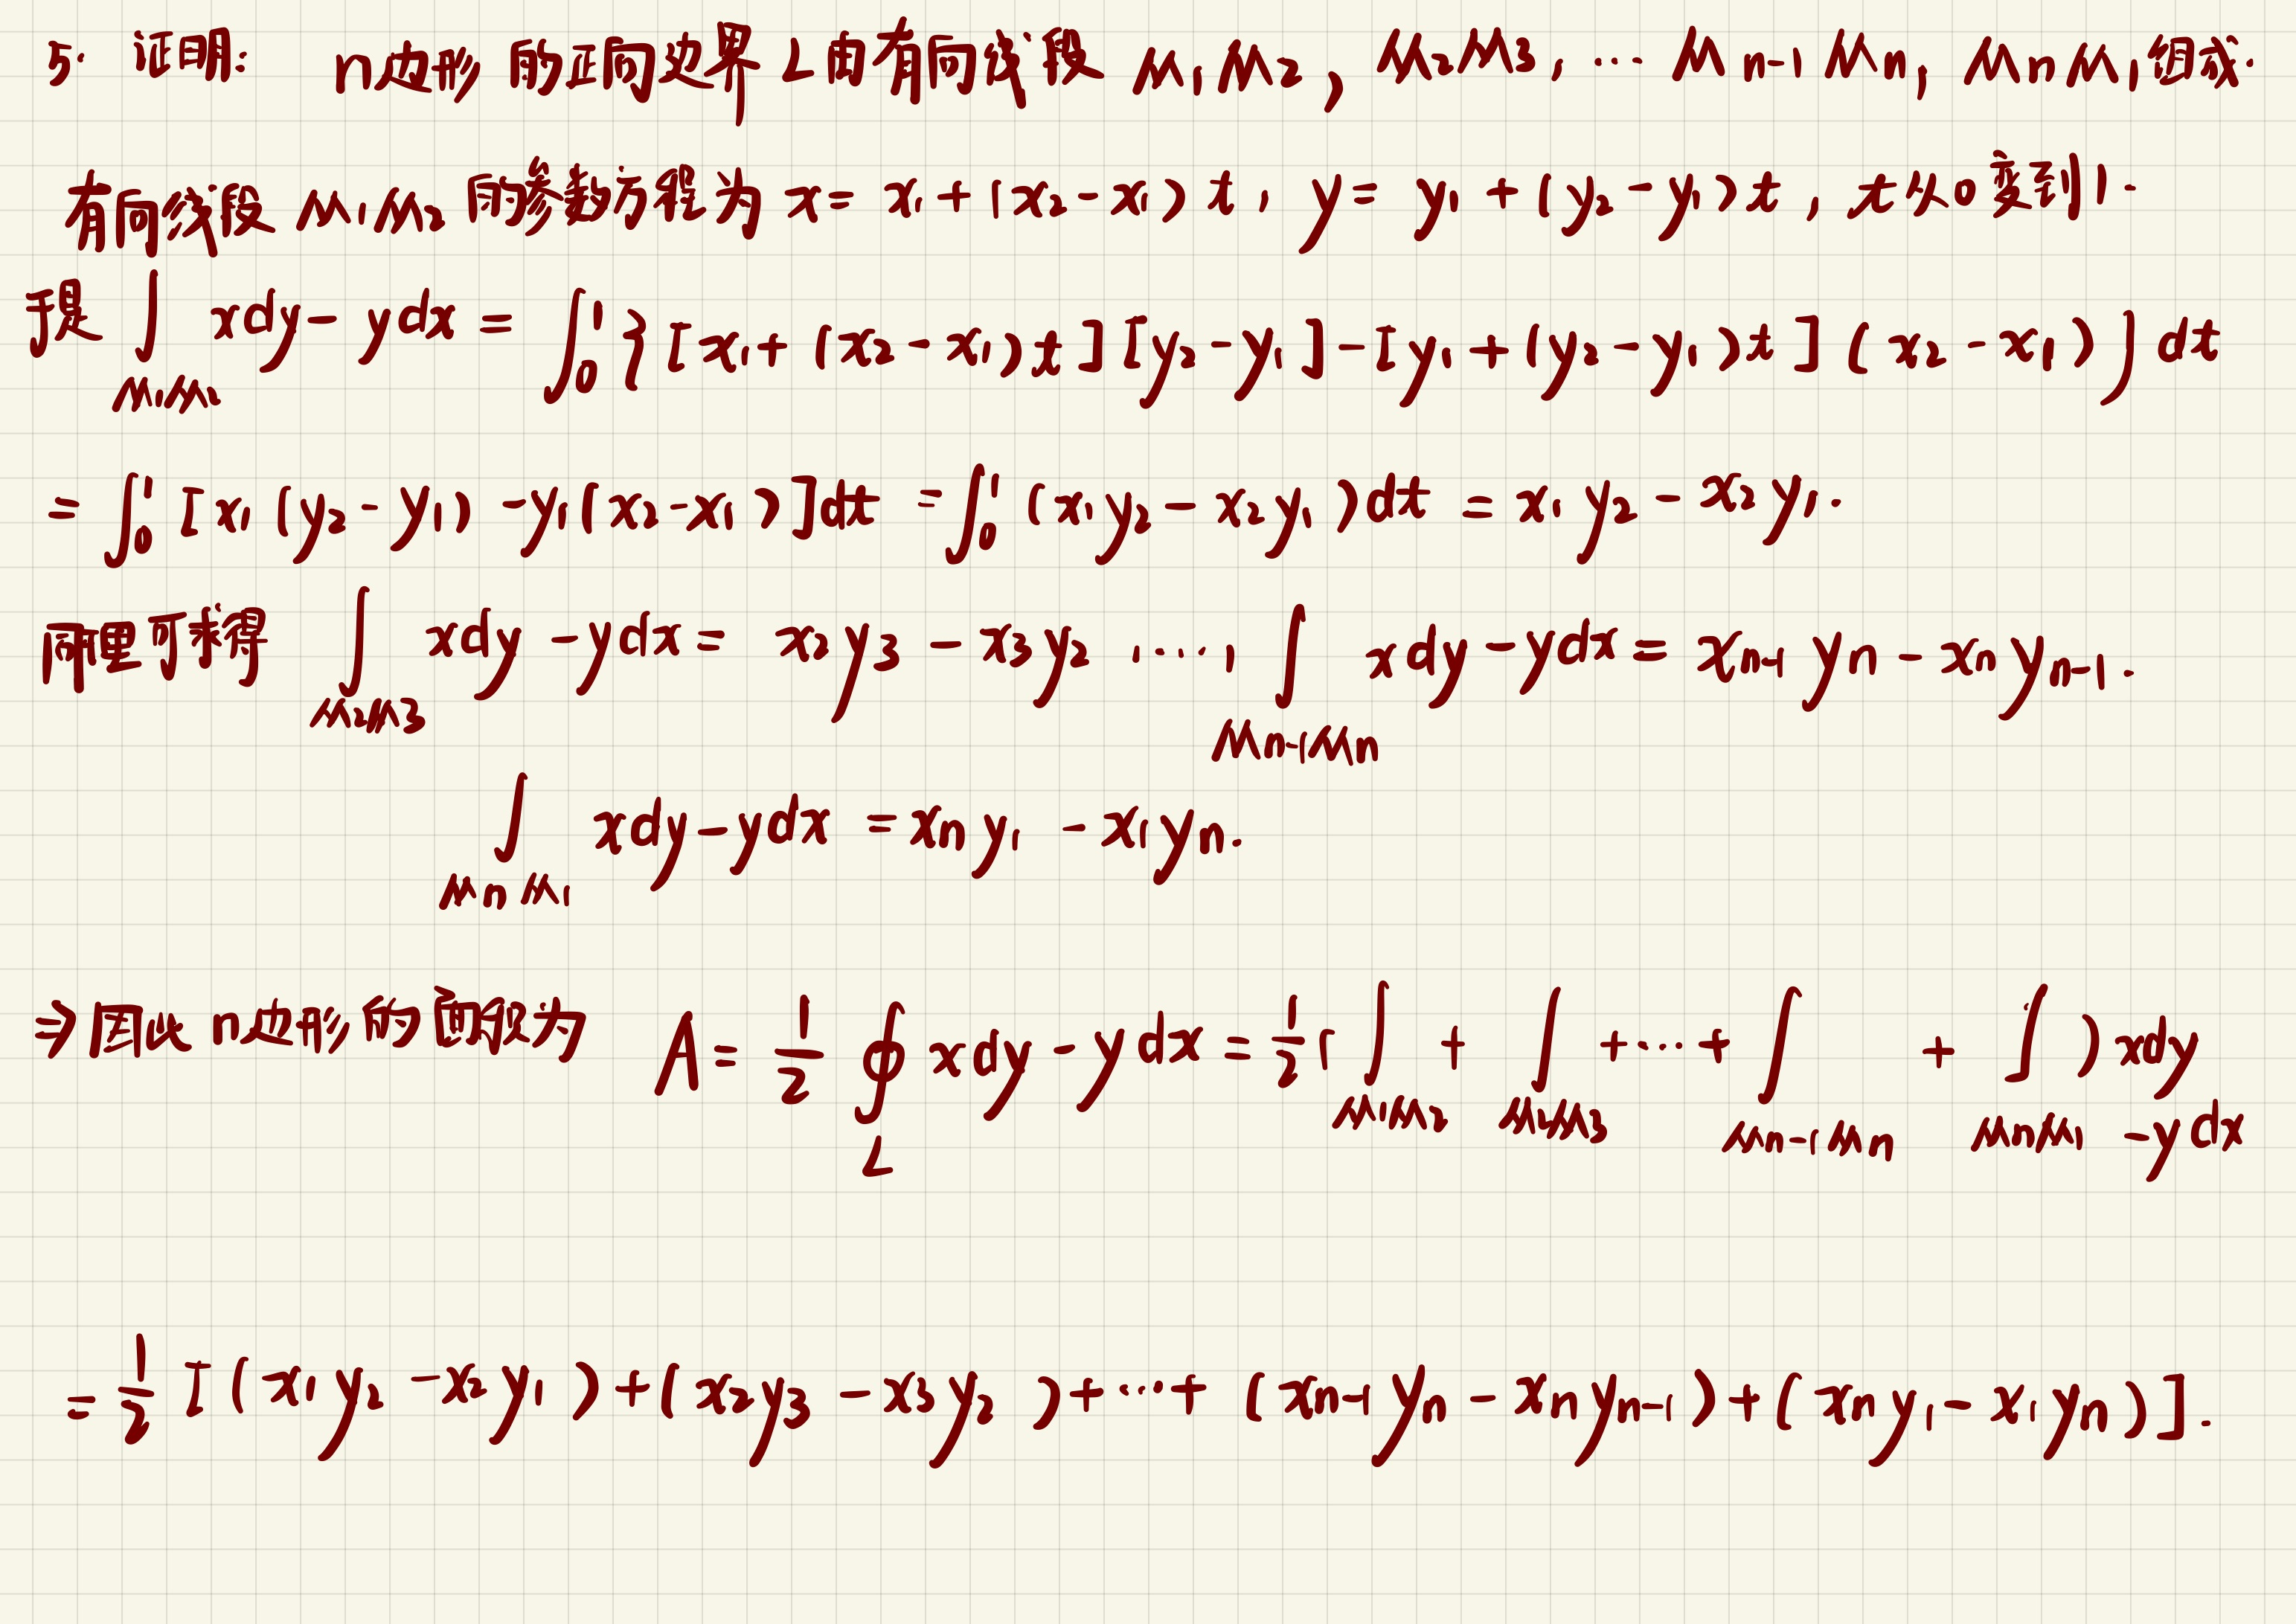 5. 证明: n边形的正向边界L由有向线段 M₁M₂, M₂M₃, … Mₙ₋₁Mₙ, MₙM₁组成.
有向线段 M₁M₂的参数方程为 x = x₁ + (x₂ - x₁)t, y = y₁ + (y₂ - y₁)t, t从0变到1.
于是 ∫_{M₁M₂} xdy - ydx = ∫₀¹ {[x₁ + (x₂ - x₁)t][y₂ - y₁] - [y₁ + (y₂ - y₁)t](x₂ - x₁)} dt
= ∫₀¹ [x₁(y₂ - y₁) - y₁(x₂ - x₁)]dt = ∫₀¹ (x₁y₂ - x₂y₁)dt = x₁y₂ - x₂y₁.
同理可求得 ∫_{M₂M₃} xdy - ydx = x₂y₃ - x₃y₂, …, ∫_{Mₙ₋₁Mₙ} xdy - ydx = xₙ₋₁yₙ - xₙyₙ₋₁.
∫_{MₙM₁} xdy - ydx = xₙy₁ - x₁yₙ.
⇒因此 n边形的面积为 A = 1/2 ∮_L xdy - ydx = 1/2 (∫_{M₁M₂} + ∫_{M₂M₃} + … + ∫_{Mₙ₋₁Mₙ} + ∫_{MₙM₁}) xdy - ydx
= 1/2 [(x₁y₂ - x₂y₁) + (x₂y₃ - x₃y₂) + … + (xₙ₋₁yₙ - xₙyₙ₋₁) + (xₙy₁ - x₁yₙ)].